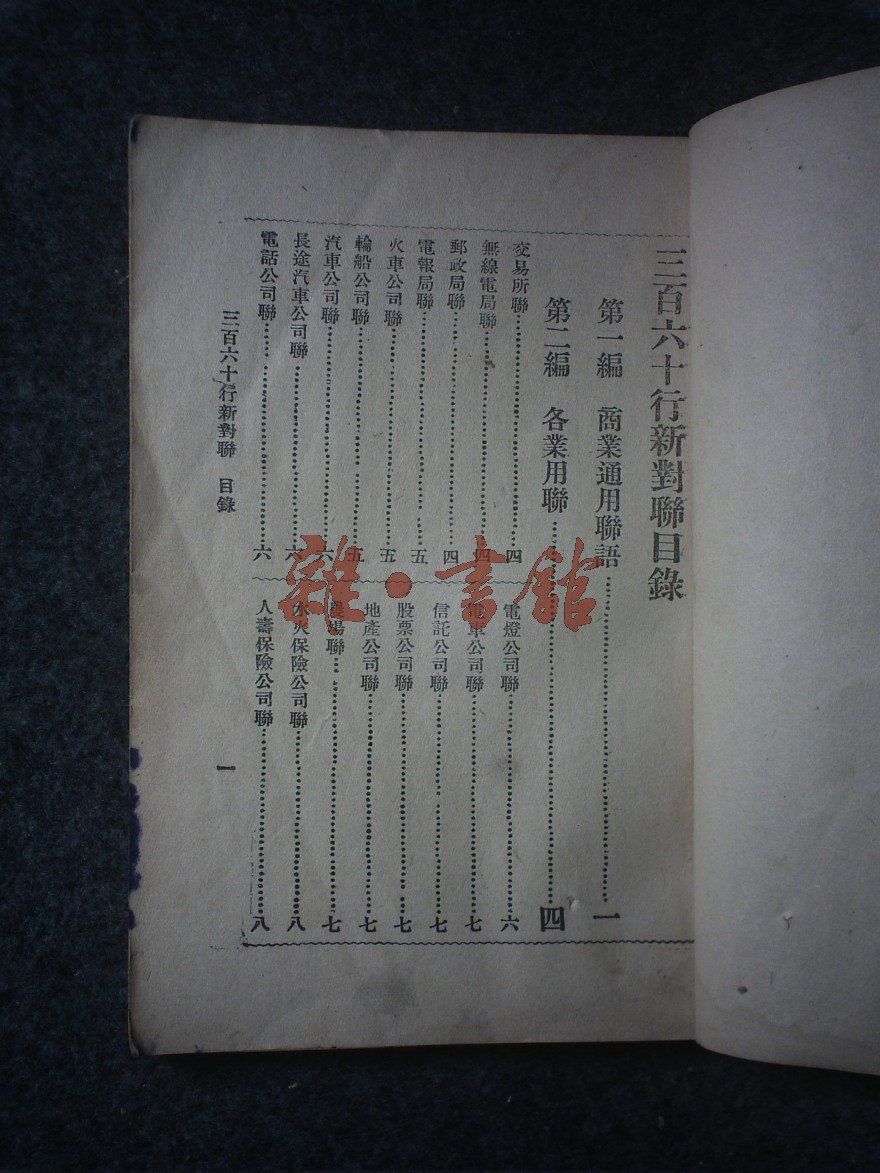 三百六十行新對聯目錄
第一編 商業通用聯語⋯⋯一
第二編 各業用聯⋯⋯四
交易所聯⋯⋯四
無線電局聯⋯⋯四
郵政局聯⋯⋯四
電報局聯⋯⋯五
火車公司聯⋯⋯五
輪船公司聯⋯⋯五
汽車公司聯⋯⋯六
長途汽車公司聯⋯⋯六
電話公司聯⋯⋯六
電燈公司聯⋯⋯六
電車公司聯⋯⋯七
信託公司聯⋯⋯七
股票公司聯⋯⋯七
地產公司聯⋯⋯七
農場聯⋯⋯七
水火保險公司聯⋯⋯八
人壽保險公司聯⋯⋯八
三百六十行新對聯 目錄
一
雜·書館